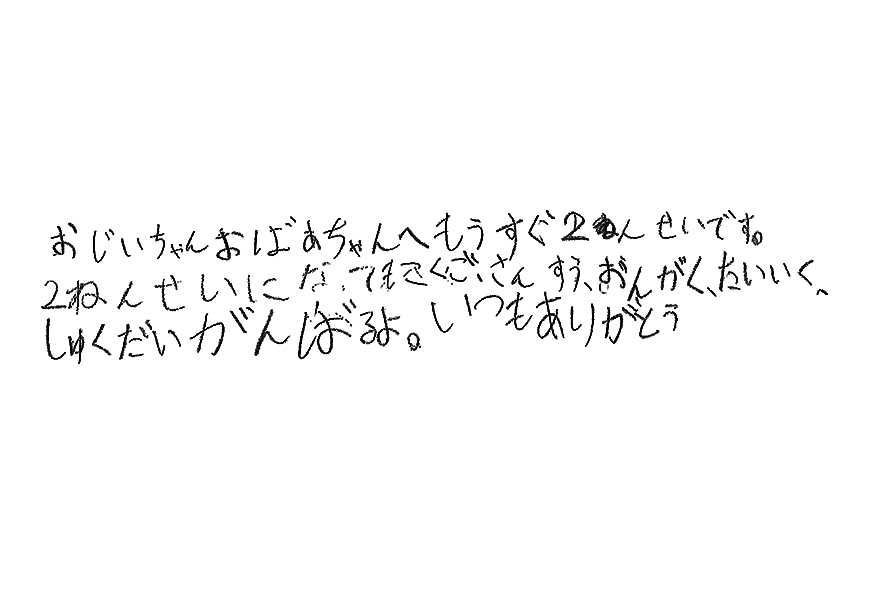 おじいちゃんおばあちゃんへもうすぐ2ねんせいです。
2ねんせいになってもこくご、さんすう、おんがく、たいいく、
しゅくだいがんばるよ。いつもありがとう